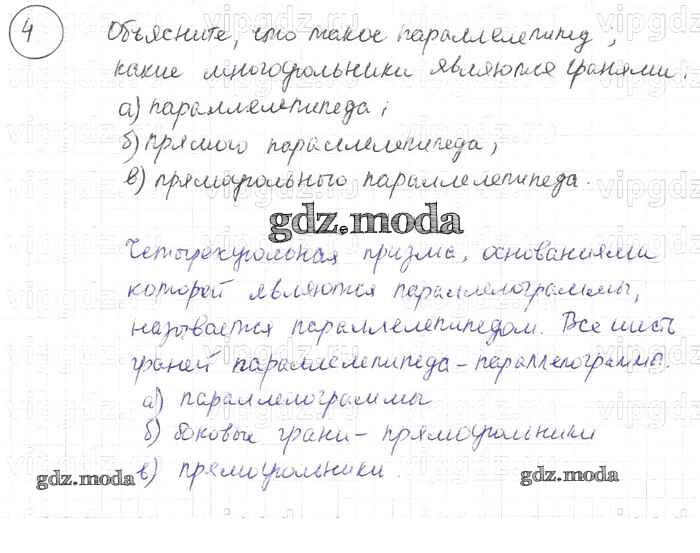 4 Объясните, что такое параллелепипед;
какие многоугольники являются гранями:
а) параллелепипеда;
б) прямого параллелепипеда;
в) прямоугольного параллелепипеда.
gdz.moda
Четырехугольная призма, основаниями
которой являются параллелограммы,
называется параллелепипедом. Все шесть
граней параллелепипеда - параллелограммы.
а) параллелограммы
б) боковые грани - прямоугольники
в) прямоугольники.
gdz.moda
gdz.moda